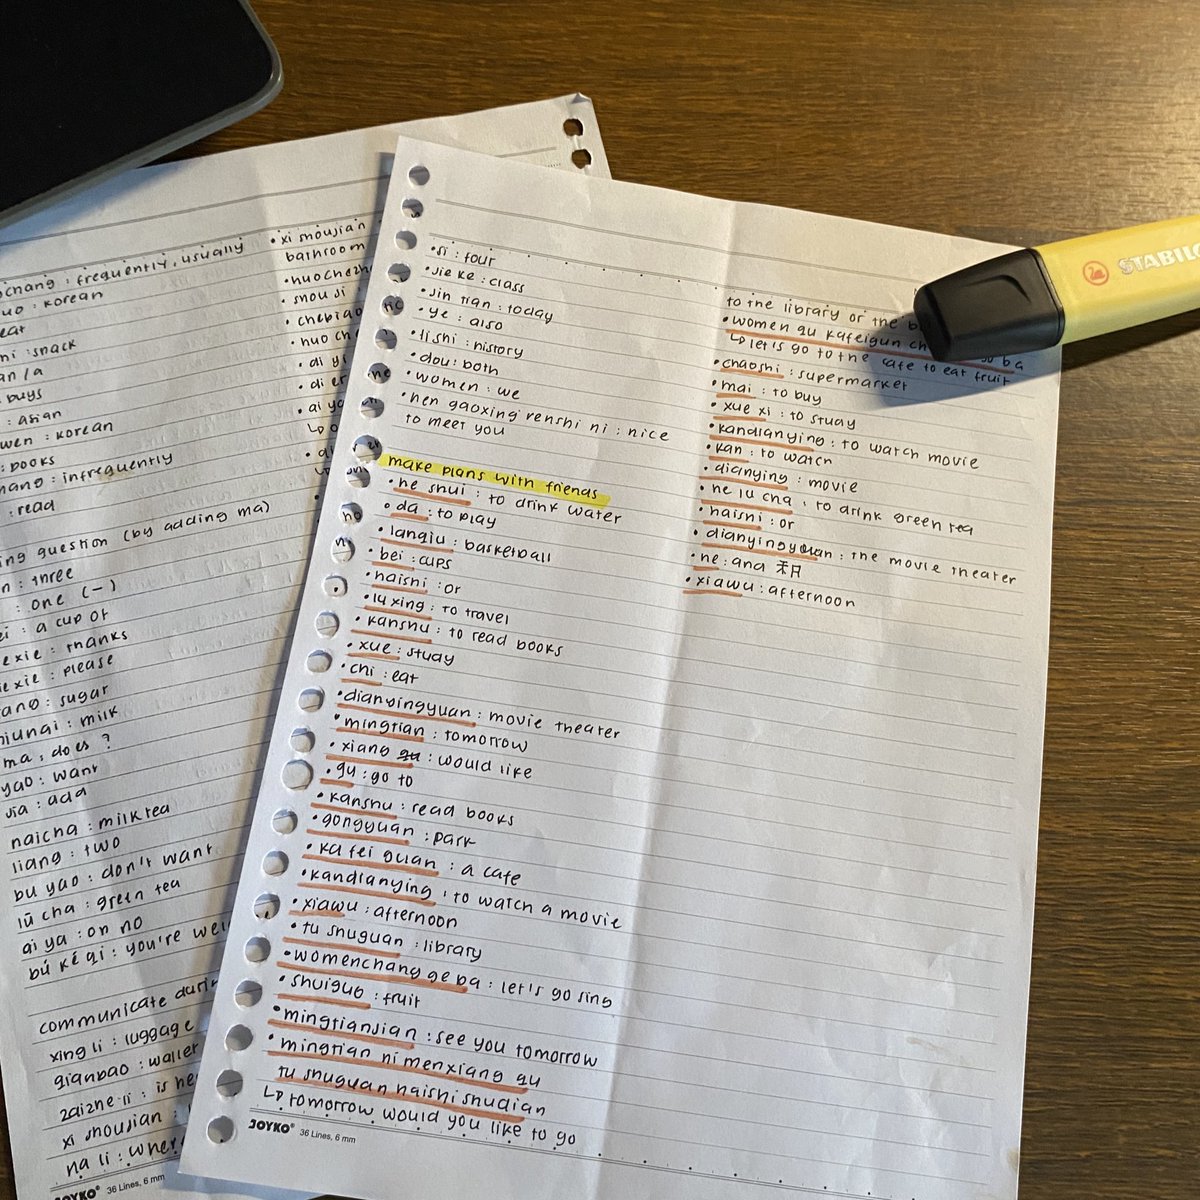 chang : frequently, usually
uo : korean
eat
hi : snack
an/a
buys
: asian
wen : korean
: books
hang : infrequently
: read
ing question (by adding ma)
n : three
: one (一)
ei : a cup of
exie : thanks
iexie : please
ang : sugar
niunai : milk
ma : does ?
yao : want
jia : add
naicha : milk tea
liang : two
bu yao : don't want
lü cha : green tea
ai ya : oh no
bú ké qi : you're wel
communicate durin
xing li : luggage
qianbao : wallet
zaizhe·li : is he
xi shoujian :
na li : wher
JOYKO® 36 Lines, 6 mm
• xi shoujian
bathroom
• huochezh
• shou ji
• chebiao
• huo ch
• di yi
• di er
• ai ya
↳ o
• si : four
• jie ke : class
• jin tian : today
• ye : also
• lishi : history
• dou : both
• women : we
• hen gaoxing renshi ni : nice
to meet you
make plans with friends
• he shui : to drink water
• da : to play
• lanqiu : basketball
• bei : cups
• haishi : or
• lu xing : to travel
• kanshu : to read books
• xue : study
• chi : eat
• dianyingyuan : movie theater
• mingtian : tomorrow
• xiang qu : would like
• qu : go to
• kanshu : read books
• gongyuan : park
• ka fei guan : a cafe
• kandianying : to watch a movie
• xiawu : afternoon
• tu shuguan : library
• womenchang ge ba : let's go sing
• shuiguo : fruit
• mingtianjian : see you tomorrow
• mingtian ni menxiang qu
tu shuguan haishi shudian
↳ tomorrow would you like to go
JOYKO® 36 Lines, 6 mm
to the library or the b
• women qu kafeigun ch ba
↳ let's go to the cafe to eat fruit
• chaoshi : supermarket
• mai : to buy
• xue xi : to study
• kandianying : to watch movie
• kan : to watch
• dianying : movie
• he lu cha : to drink green tea
• haishi : or
• dianyingyuan : the movie theater
• he : and 和
• xiawu : afternoon
STABILO